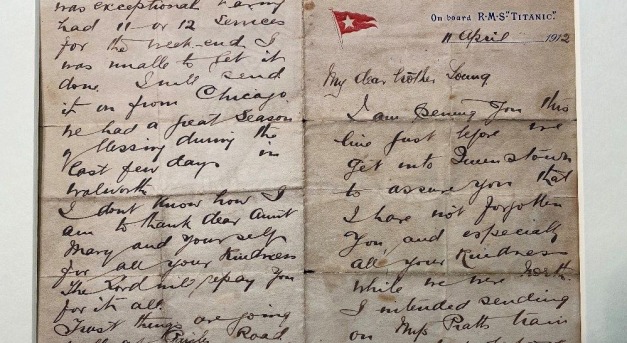 On board R·M·S "TITANIC".
11 April 1912
My dear brother Young
I am sending you this
line just before we
get into Queenstown
to assure you that
I have not forgotten
you, and especially
all your kindness
while we were North.
I intended sending
on Mrs Pratts train
was exceptional having
had 11 or 12 Services
for the week-end I
was unable to get it
done. I will send
it on from Chicago.
We had a great Season
of blessing during the
last few days in
Walworth
I dont know how I
am to thank dear Aunt
Mary and yourself
for all your Kindness
The Lord will repay you
for it all.
Trust things are going
Paisley Road